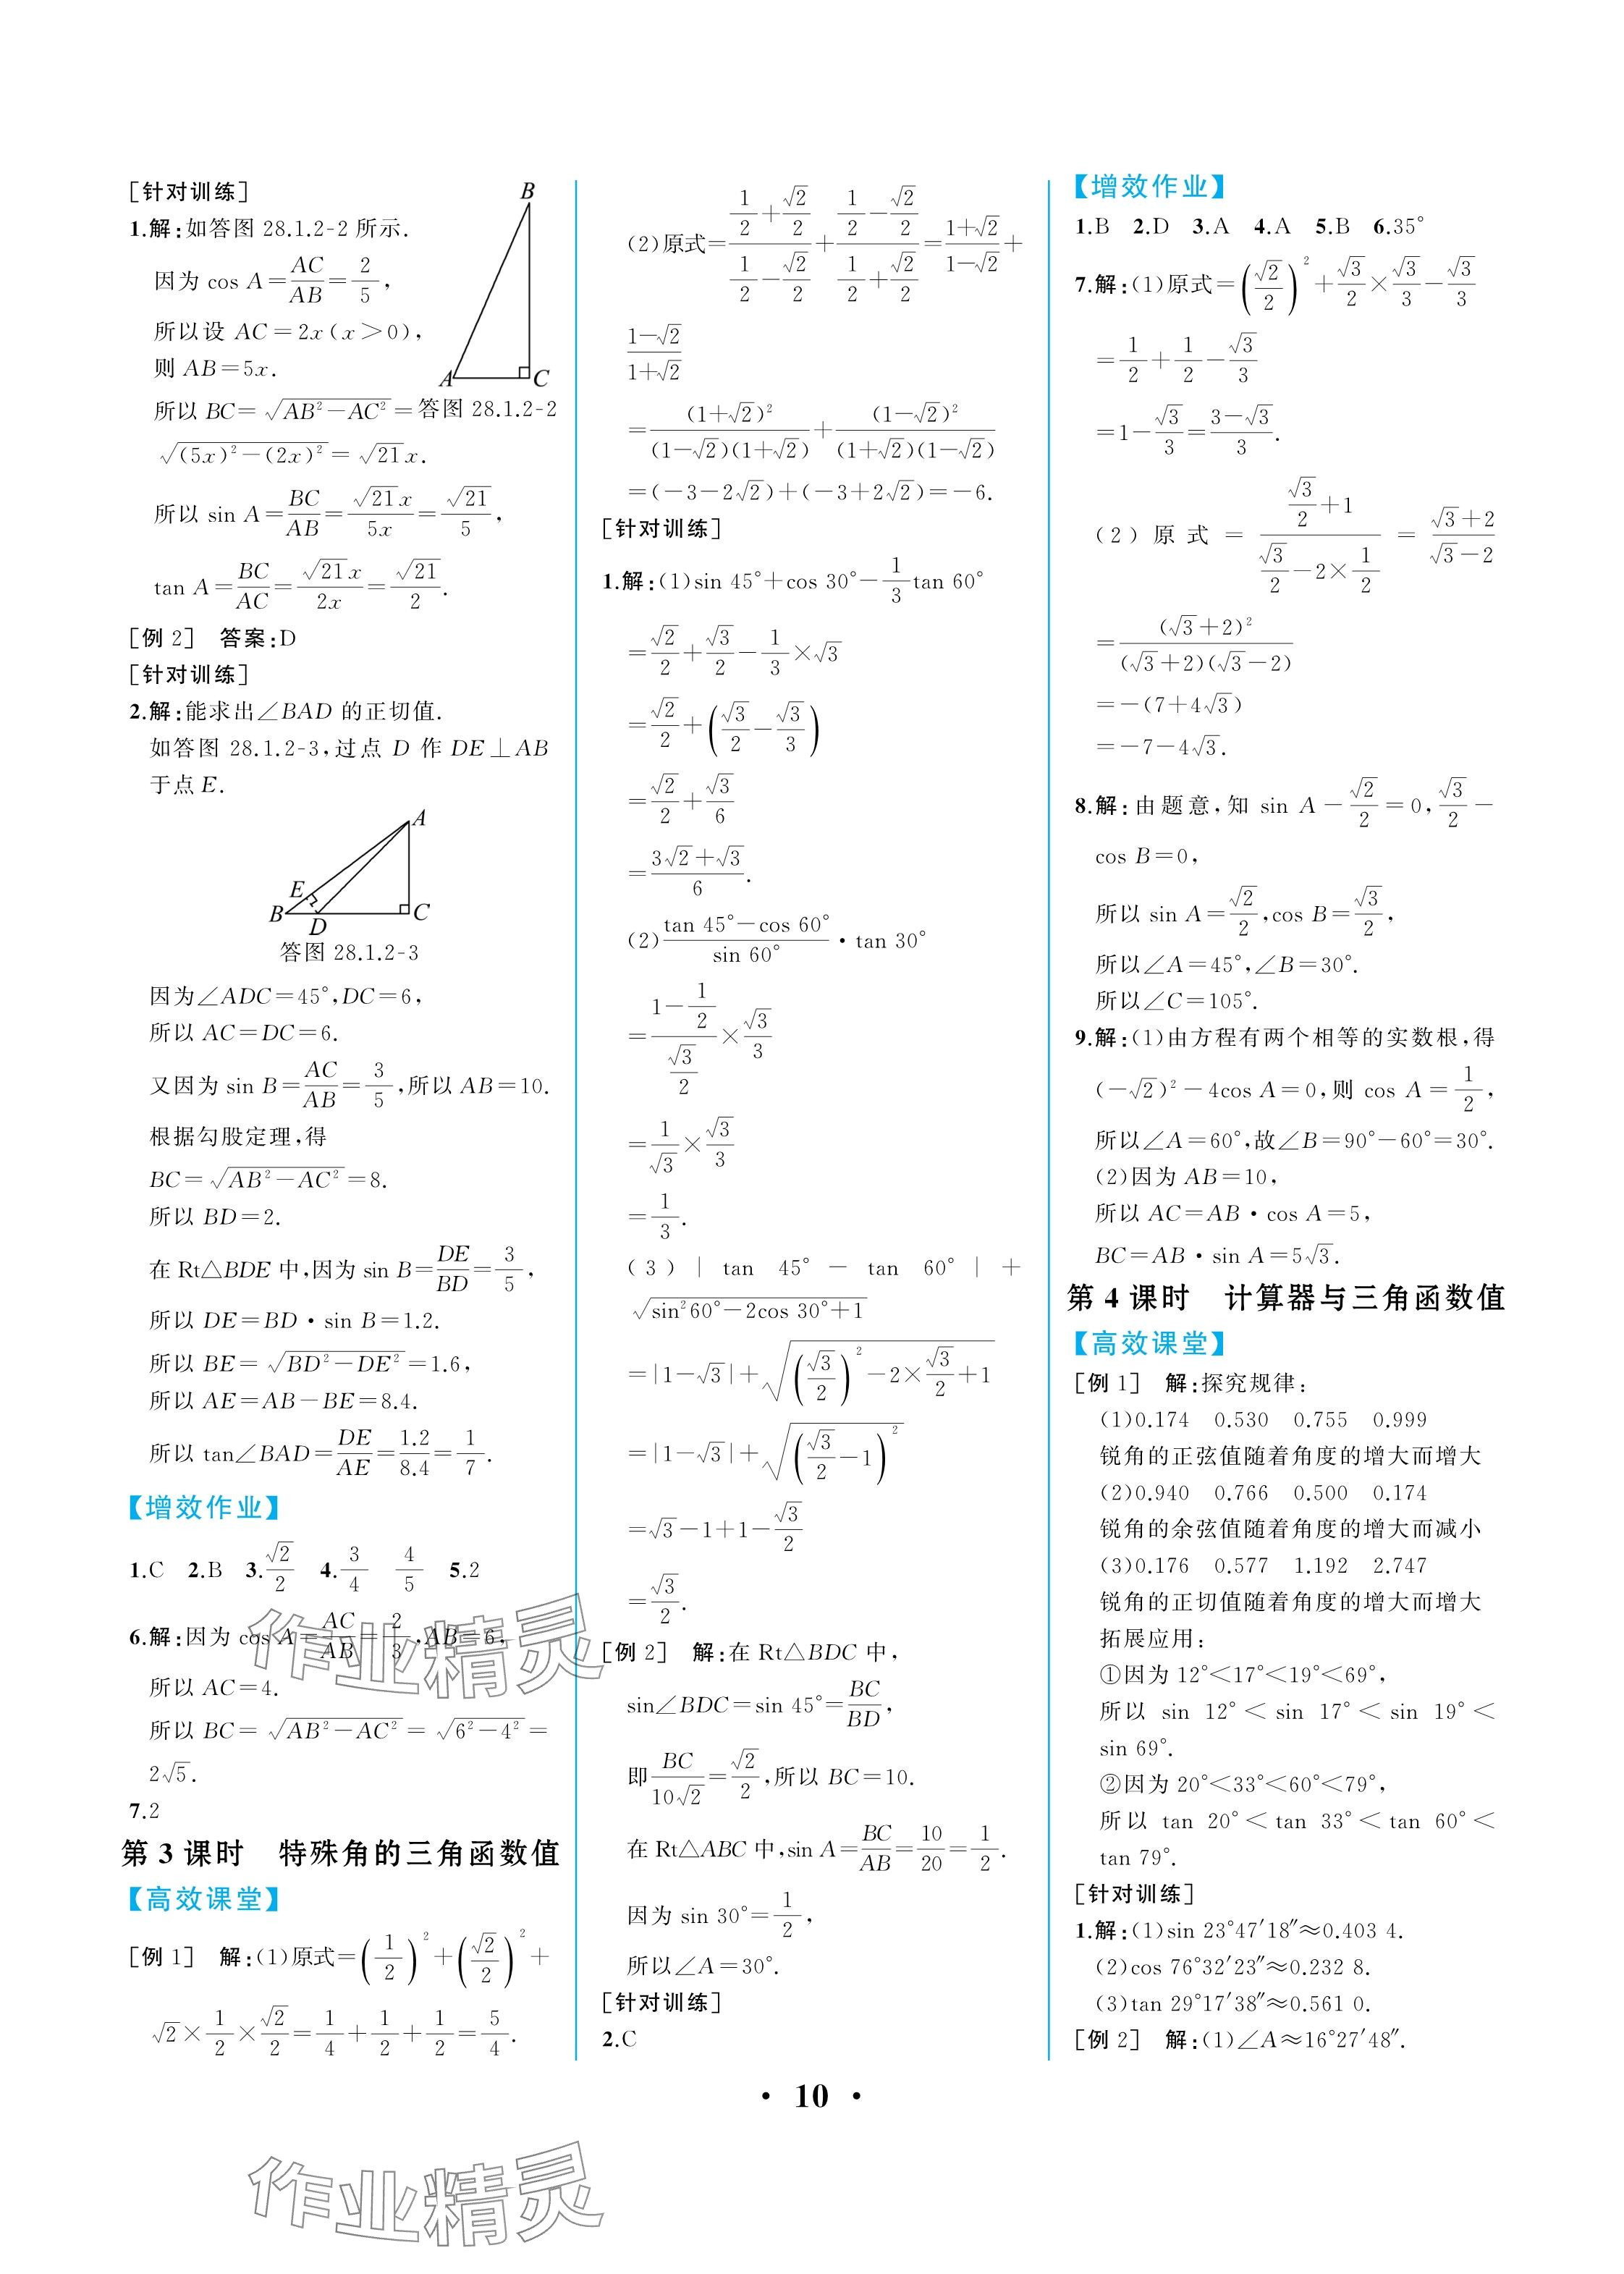 [针对训练]
1.解:如答图 28.1.2-2 所示.
B
A
C
答图 28.1.2-2
因为 cos A=AC/AB=2/5,
所以设 AC=2x(x>0),
则 AB=5x.
所以 BC=√(AB²-AC²)=
√((5x)²-(2x)²)=√21x.
所以 sin A=BC/AB=√21x/5x=√21/5,
tan A=BC/AC=√21x/2x=√21/2.
[例 2] 答案:D
[针对训练]
2.解:能求出∠BAD 的正切值.
如答图 28.1.2-3,过点 D 作 DE⊥AB
于点 E.
A
E
B
D
C
答图 28.1.2-3
因为∠ADC=45°,DC=6,
所以 AC=DC=6.
又因为 sin B=AC/AB=3/5,所以 AB=10.
根据勾股定理,得
BC=√(AB²-AC²)=8.
所以 BD=2.
在 Rt△BDE 中,因为 sin B=DE/BD=3/5,
所以 DE=BD·sin B=1.2.
所以 BE=√(BD²-DE²)=1.6,
所以 AE=AB-BE=8.4.
所以 tan∠BAD=DE/AE=1.2/8.4=1/7.
【增效作业】
1.C 2.B 3.√2/2 4.3/4 4/5 5.2
6.解:因为 cos A=AC/AB=2/3,AB=6,
所以 AC=4.
所以 BC=√(AB²-AC²)=√(6²-4²)=
2√5.
7.2
第 3 课时 特殊角的三角函数值
【高效课堂】
[例 1] 解:(1)原式=(1/2)²+(√2/2)²+
√2×1/2×√2/2=1/4+1/2+1/2=5/4.
(2)原式=(1/2+√2/2)/(1/2-√2/2)+(1/2-√2/2)/(1/2+√2/2)=(1+√2)/(1-√2)+
(1-√2)/(1+√2)
=(1+√2)²/((1-√2)(1+√2))+(1-√2)²/((1+√2)(1-√2))
=(-3-2√2)+(-3+2√2)=-6.
[针对训练]
1.解:(1)sin 45°+cos 30°-1/3tan 60°
=√2/2+√3/2-1/3×√3
=√2/2+(√3/2-√3/3)
=√2/2+√3/6
=(3√2+√3)/6.
(2)(tan 45°-cos 60°)/sin 60°·tan 30°
=(1-1/2)/(√3/2)×√3/3
=1/√3×√3/3
=1/3.
(3)|tan 45°-tan 60°|+
√(sin²60°-2cos 30°+1)
=|1-√3|+√((√3/2)²-2×√3/2+1)
=|1-√3|+√((√3/2-1)²)
=√3-1+1-√3/2
=√3/2.
[例 2] 解:在 Rt△BDC 中,
sin∠BDC=sin 45°=BC/BD,
即BC/10√2=√2/2,所以 BC=10.
在 Rt△ABC 中,sin A=BC/AB=10/20=1/2.
因为 sin 30°=1/2,
所以∠A=30°.
[针对训练]
2.C
【增效作业】
1.B 2.D 3.A 4.A 5.B 6.35°
7.解:(1)原式=(√2/2)²+√3/2×√3/3-√3/3
=1/2+1/2-√3/3
=1-√3/3=(3-√3)/3.
(2)原式=(√3/2+1)/(√3/2-2×1/2)=(√3+2)/(√3-2)
=(√3+2)²/((√3+2)(√3-2))
=-(7+4√3)
=-7-4√3.
8.解:由题意,知 sin A-√2/2=0,√3/2-
cos B=0,
所以 sin A=√2/2,cos B=√3/2,
所以∠A=45°,∠B=30°.
所以∠C=105°.
9.解:(1)由方程有两个相等的实数根,得
(-√2)²-4cos A=0,则 cos A=1/2,
所以∠A=60°,故∠B=90°-60°=30°.
(2)因为 AB=10,
所以 AC=AB·cos A=5,
BC=AB·sin A=5√3.
第 4 课时 计算器与三角函数值
【高效课堂】
[例 1] 解:探究规律:
(1)0.174 0.530 0.755 0.999
锐角的正弦值随着角度的增大而增大
(2)0.940 0.766 0.500 0.174
锐角的余弦值随着角度的增大而减小
(3)0.176 0.577 1.192 2.747
锐角的正切值随着角度的增大而增大
拓展应用:
①因为 12°<17°<19°<69°,
所以 sin 12°<sin 17°<sin 19°<
sin 69°.
②因为 20°<33°<60°<79°,
所以 tan 20°<tan 33°<tan 60°<
tan 79°.
[针对训练]
1.解:(1)sin 23°47′18″≈0.403 4.
(2)cos 76°32′23″≈0.232 8.
(3)tan 29°17′38″≈0.561 0.
[例 2] 解:(1)∠A≈16°27′48″.
· 10 ·
作业精灵
作业精灵